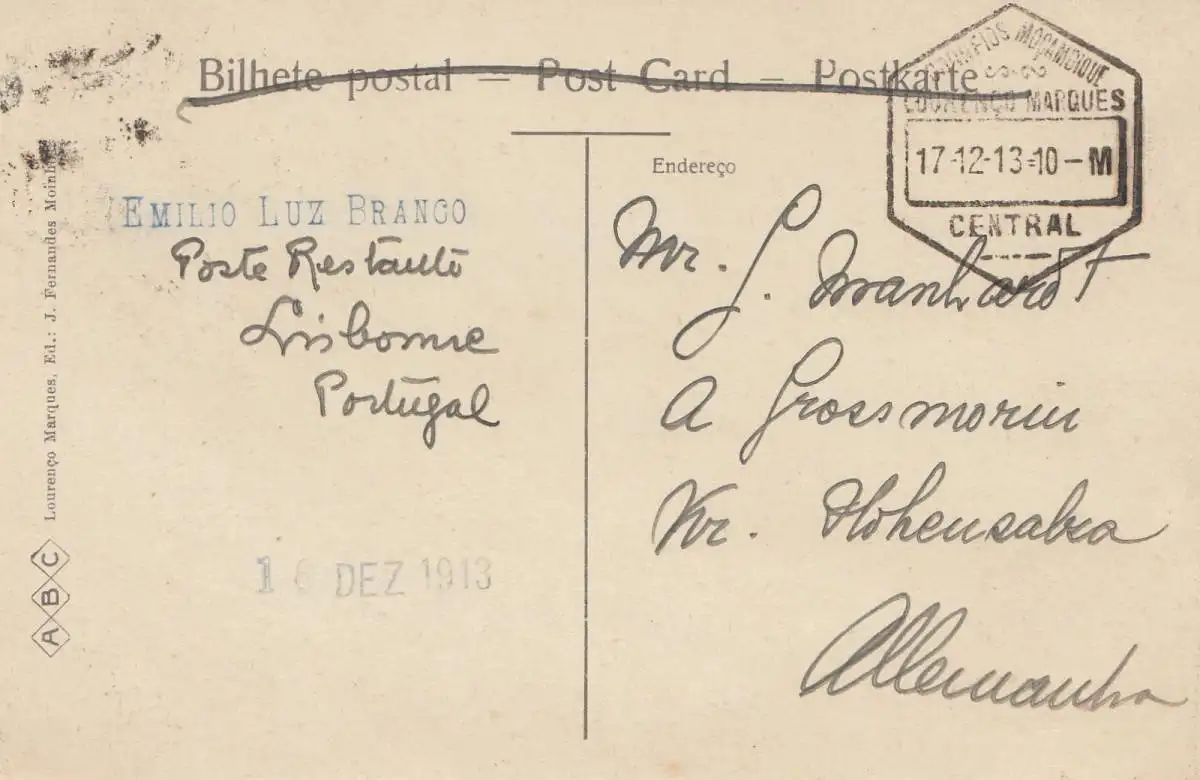 Bilhete postal — Post Card — Postkarte
MOÇAMBIQUE
LOURENÇO MARQUES
17-12-13-10-M
CENTRAL
EMILIO LUZ BRANCO
Poste Restante
Lisbonne
Portugal
16 DEZ 1913
Endereço
Mr. G. Manhardt
A Grossmorin
Kr. Hohensalza
Allemanha
Lourenço Marques, Ed.: J. Fernandes
A B C